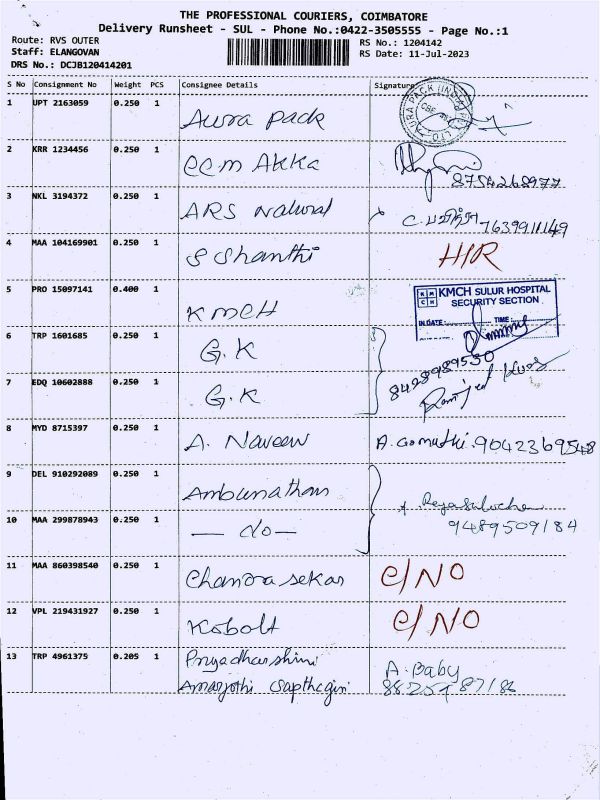 THE PROFESSIONAL COURIERS, COIMBATORE
Delivery Runsheet - SUL - Phone No.:0422-3505555 - Page No.:1
Route: RVS OUTER
Staff: ELANGOVAN
DRS No.: DCJB120414201
RS No.: 1204142
RS Date: 11-Jul-2023
S No Consignment No Weight PCS Consignee Details Signature
1 UPT 2163059 0.250 1 Aura pack
2 KRR 1234456 0.250 1 eem Akka 8754268977
3 NKL 3194372 0.250 1 ARS Natural 7639911149
4 MAA 104169901 0.250 1 S Shanthi H/R
5 PRO 15097141 0.400 1 KMCH
KMCH SULUR HOSPITAL
SECURITY SECTION
IN DATE: TIME:
6 TRP 1601685 0.250 1 G.K
8428989530
7 EDQ 10602888 0.250 1 G.K
8 MYD 8715397 0.250 1 A. Naveen A. Gomathi. 9042369548
9 DEL 910292089 0.250 1 Ambunathan
10 MAA 299878943 0.250 1 — do — 9489509184
11 MAA 860398540 0.250 1 Chandrasekar C/NO
12 VPL 219431927 0.250 1 Kobolt C/NO
13 TRP 4961375 0.205 1 Priyadharshini A. Baby
Amarjothi Sapthagiri